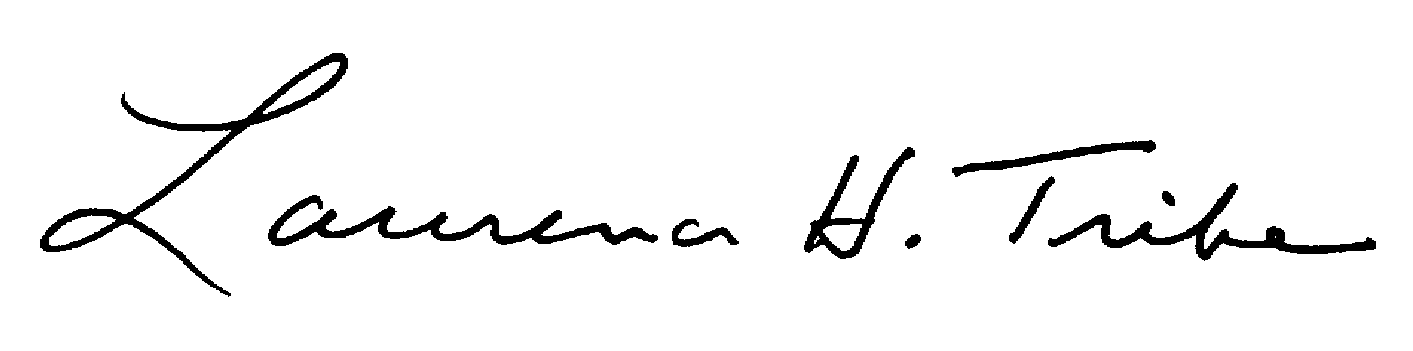 Laurence H. Tribe